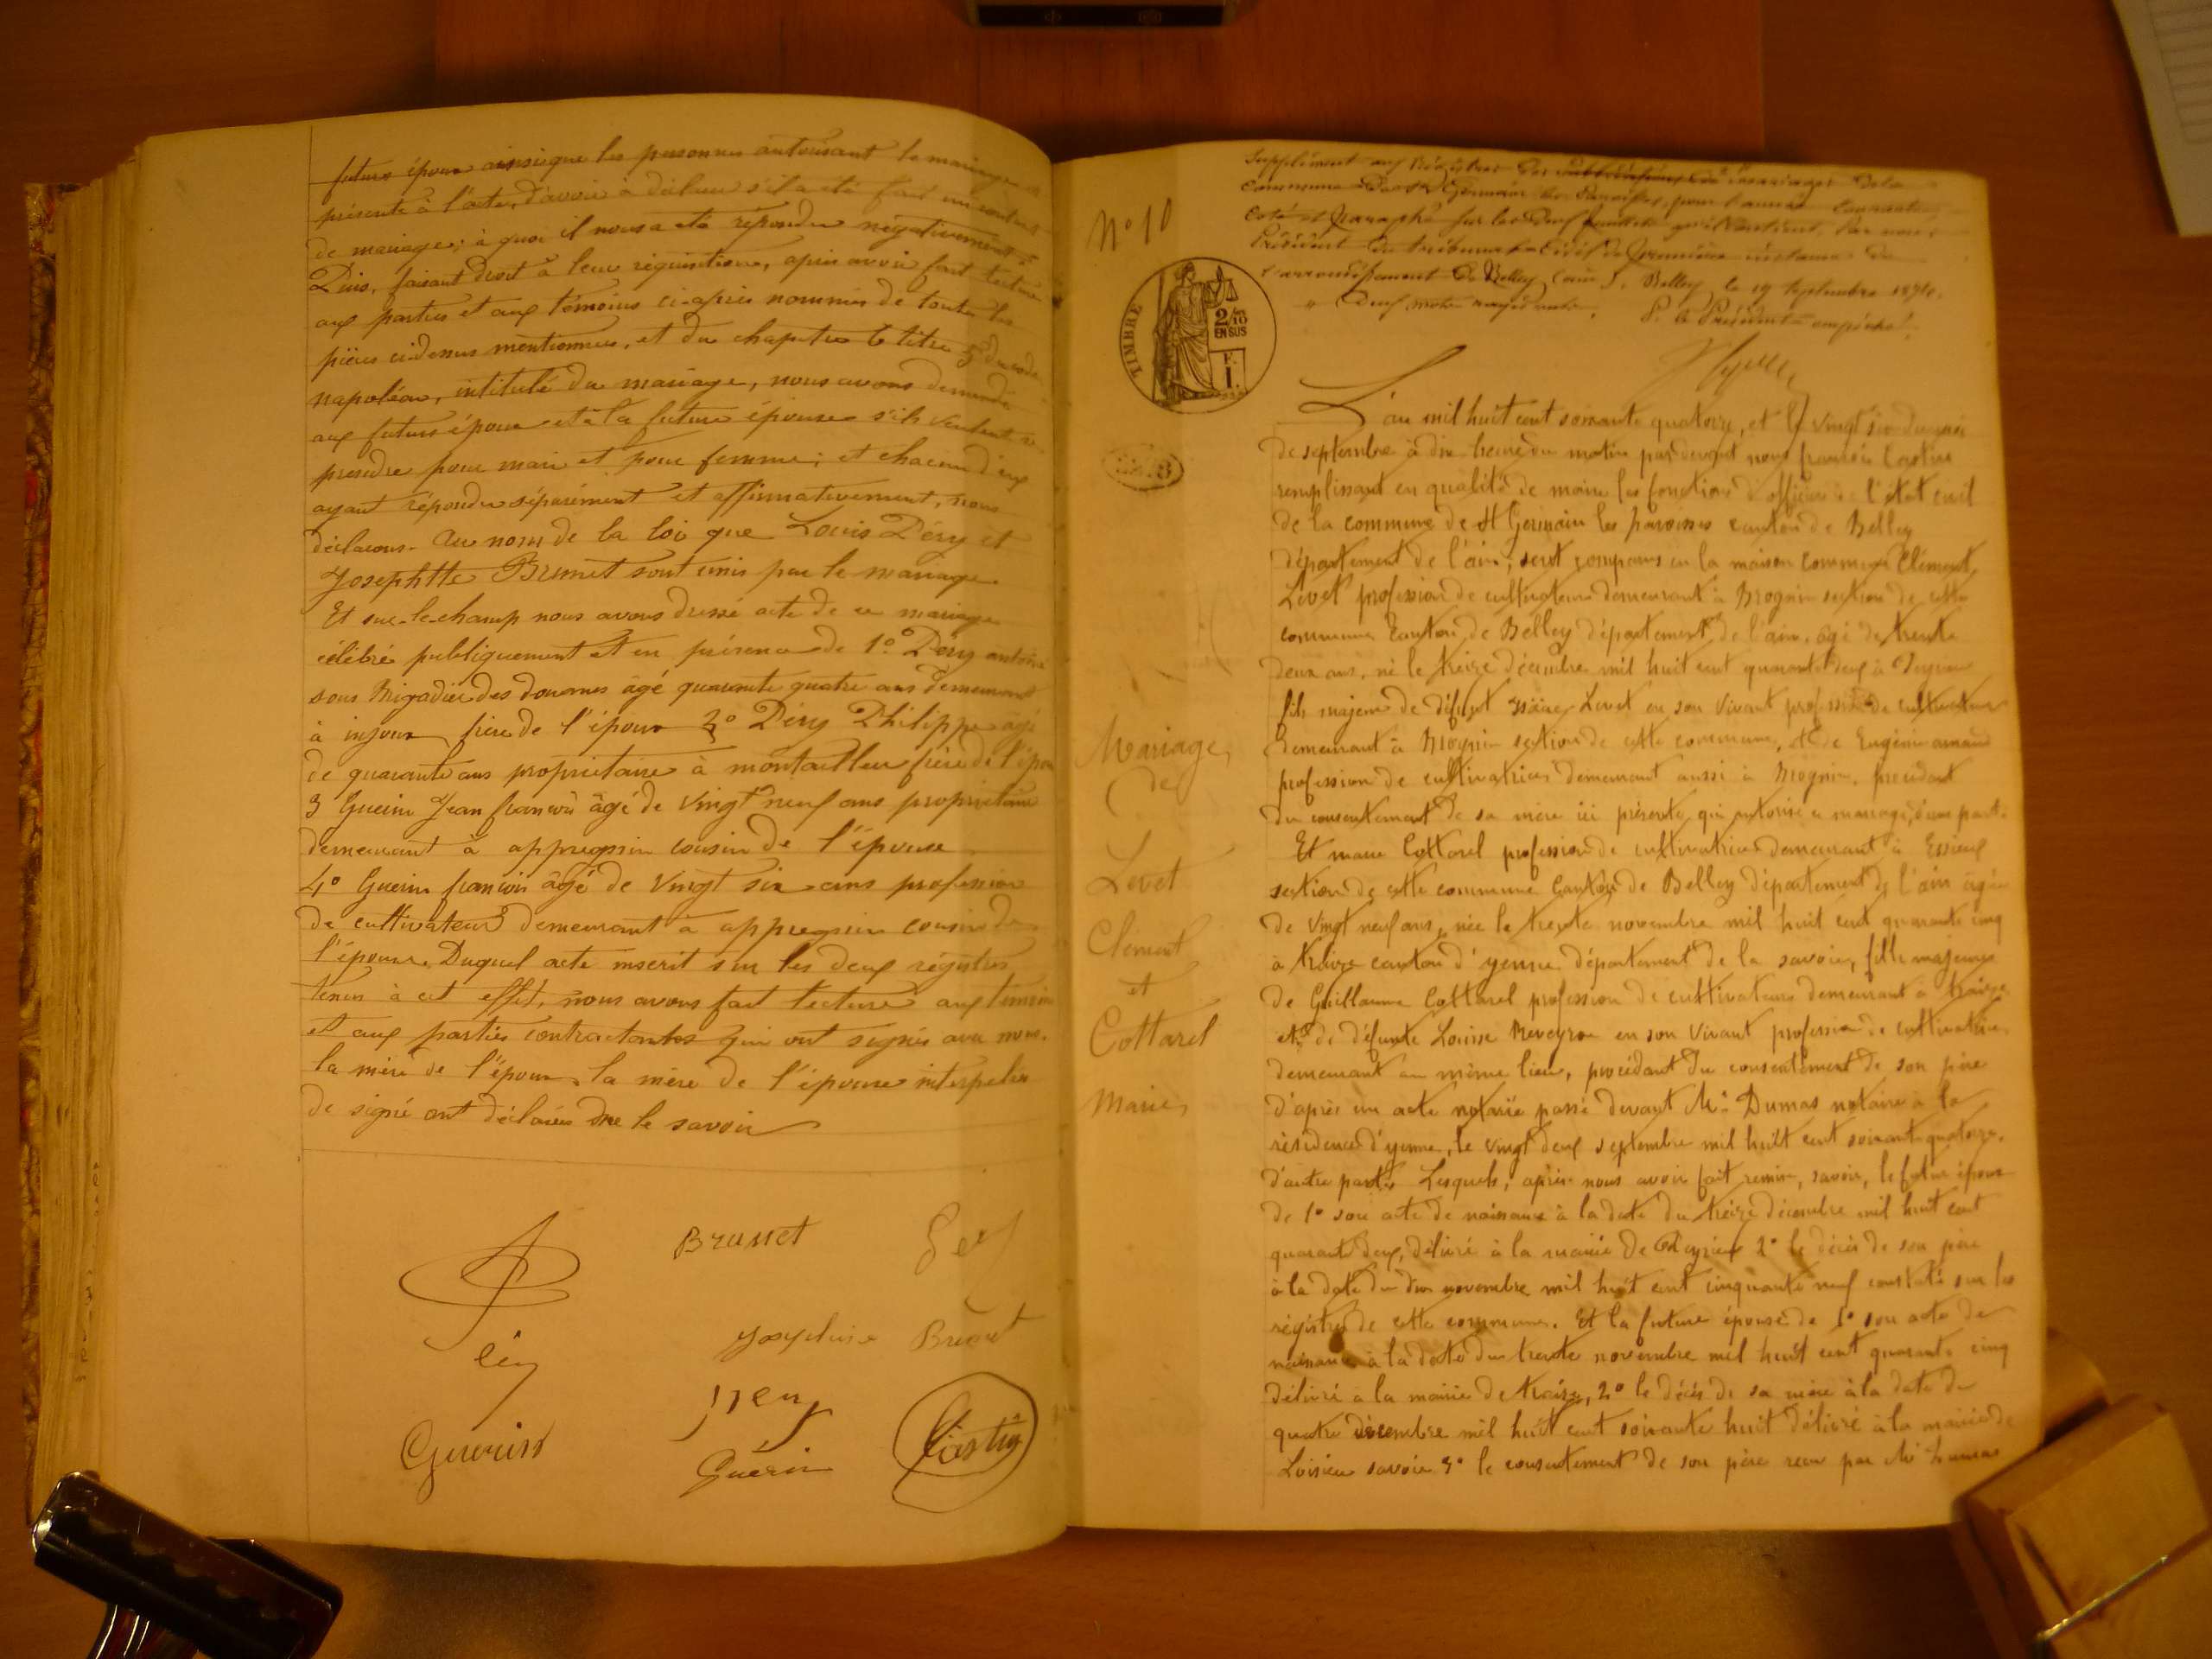 futurs époux ainsi que les personnes autorisant le mariage
présente à l'acte, d'avoir à déclarer s'il a été fait un contrat
de mariage; à quoi il nous a été répondu négativement
Puis, faisant droit à leur réquisition, après avoir fait lecture
aux parties et aux témoins ci-après nommés de toutes les
pièces ci-dessus mentionnées, et du chapitre 6 titre 5 du code
napoléon, intitulé du mariage, nous avons demandé
aux futurs époux et à la future épouse s'ils veulent se
prendre pour mari et pour femme; et chacun d'eux
ayant répondu séparément et affirmativement, nous
déclarons au nom de la loi que Louis Déry et
Josephtte Brunet sont unis par le mariage
Et sur-le-champ nous avons dressé acte de ce mariage
célébré publiquement et en présence de 1° Déry antoine
sous Brigadier des douanes âgé quarante quatre ans demeurant
à injoux frère de l'époux 2° Déry Philippe âgé
de quarante ans propriétaire à montailleur frère de l'époux
3 Guerin Jean françois âgé de vingt neuf ans propriétaire
demeurant à appregnin cousin de l'épouse
4° Guerin françois âgé de vingt six ans profession
de cultivateur demeurant à appregnin cousin de
l'épouse. Duquel acte inscrit sur les deux régistres
tenus à cet effet, nous avons fait lecture aux témoins
et aux parties contractantes qui ont signés avec nous.
la mère de l'époux, la mère de l'épouse interpelées
de signé ont déclarées ne le savoir
Brunet
Josephine Brunet
Guerin
Guérin
Castin
N° 10
TIMBRE
2/10
EN SUS
F.
I.
Supplément aux Régistres des publications de mariages de la
commune de St Germain les Paroisses, pour l'année courante
Coté et Paraphé sur les deux feuillets qu'il contient, Par nous
Président du tribunal Civil de première instance de
l'arrondissement de Belley (ain). Belley, le 19 Septembre 1874.
deux mots rayés nuls. P. le Président empêché.
L'an mil huit cent soixante quatorze, et le vingt six du mois
de septembre à dix heures du matin par devant nous françois Castin
remplissant en qualité de maire les fonctions d'officier de l'état civil
de la commune de St Germain les paroisses canton de Belley
département de l'ain; sont comparus en la maison commune Clément
Levet profession de cultivateur demeurant à Brognin section de cette
commune canton de Belley département de l'ain, âgé de trente
deux ans, né le treize décembre mil huit cent quarante deux à Peyrieu
fils majeur de défunt Levet en son vivant profession de cultivateur
demeurant à Brognin section de cette commune, et de Eugénie arnaud
profession de cultivatrice demeurant aussi à Brognin, procédant
du consentement de sa mère ici présente qui autorise ce mariage, d'une part.
Et marie Cottarel profession de cultivatrice demeurant à Essieux
section de cette commune Canton de Belley département de l'ain âgée
de vingt neuf ans, née le trente novembre mil huit cent quarante cinq
à traize canton d'yenne département de la savoie, fille majeure
de Guillaume Cottarel profession de cultivateur demeurant à traize
et de défunte Louise Reveyron en son vivant profession de cultivatrice
demeurant au même lieu, procédant du consentement de son père
d'après un acte notarié passé devant Me Dumas notaire à la
résidence d'yenne, le vingt deux septembre mil huit cent soixante quatorze.
d'autre part. Lesquels, après nous avoir fait remise, savoir, le futur époux
de 1° son acte de naissance à la date du treize décembre mil huit cent
quarante deux, délivré à la mairie de Peyrieu 2° le décès de son père
à la date du dix novembre mil huit cent cinquante neuf constaté sur les
régistres de cette commune. Et la future épouse de 1° son acte de
naissance à la date du trente novembre mil huit cent quarante cinq
délivré à la mairie de traize, 2° le décès de sa mère à la date du
quatre décembre mil huit cent soixante huit délivré à la mairie de
Loisieu savoie 3° le consentement de son père reçu par Me Dumas
Mariage
de
Levet
Clement
et
Cottarel
Marie